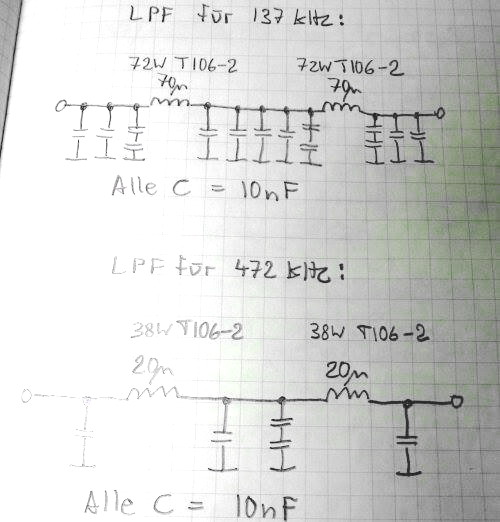 LPF für 137 kHz:
72W T106-2 72W T106-2
70µ 70µ
Alle C = 10nF
LPF für 472 kHz:
38W T106-2 38W T106-2
20µ 20µ
Alle C = 10nF